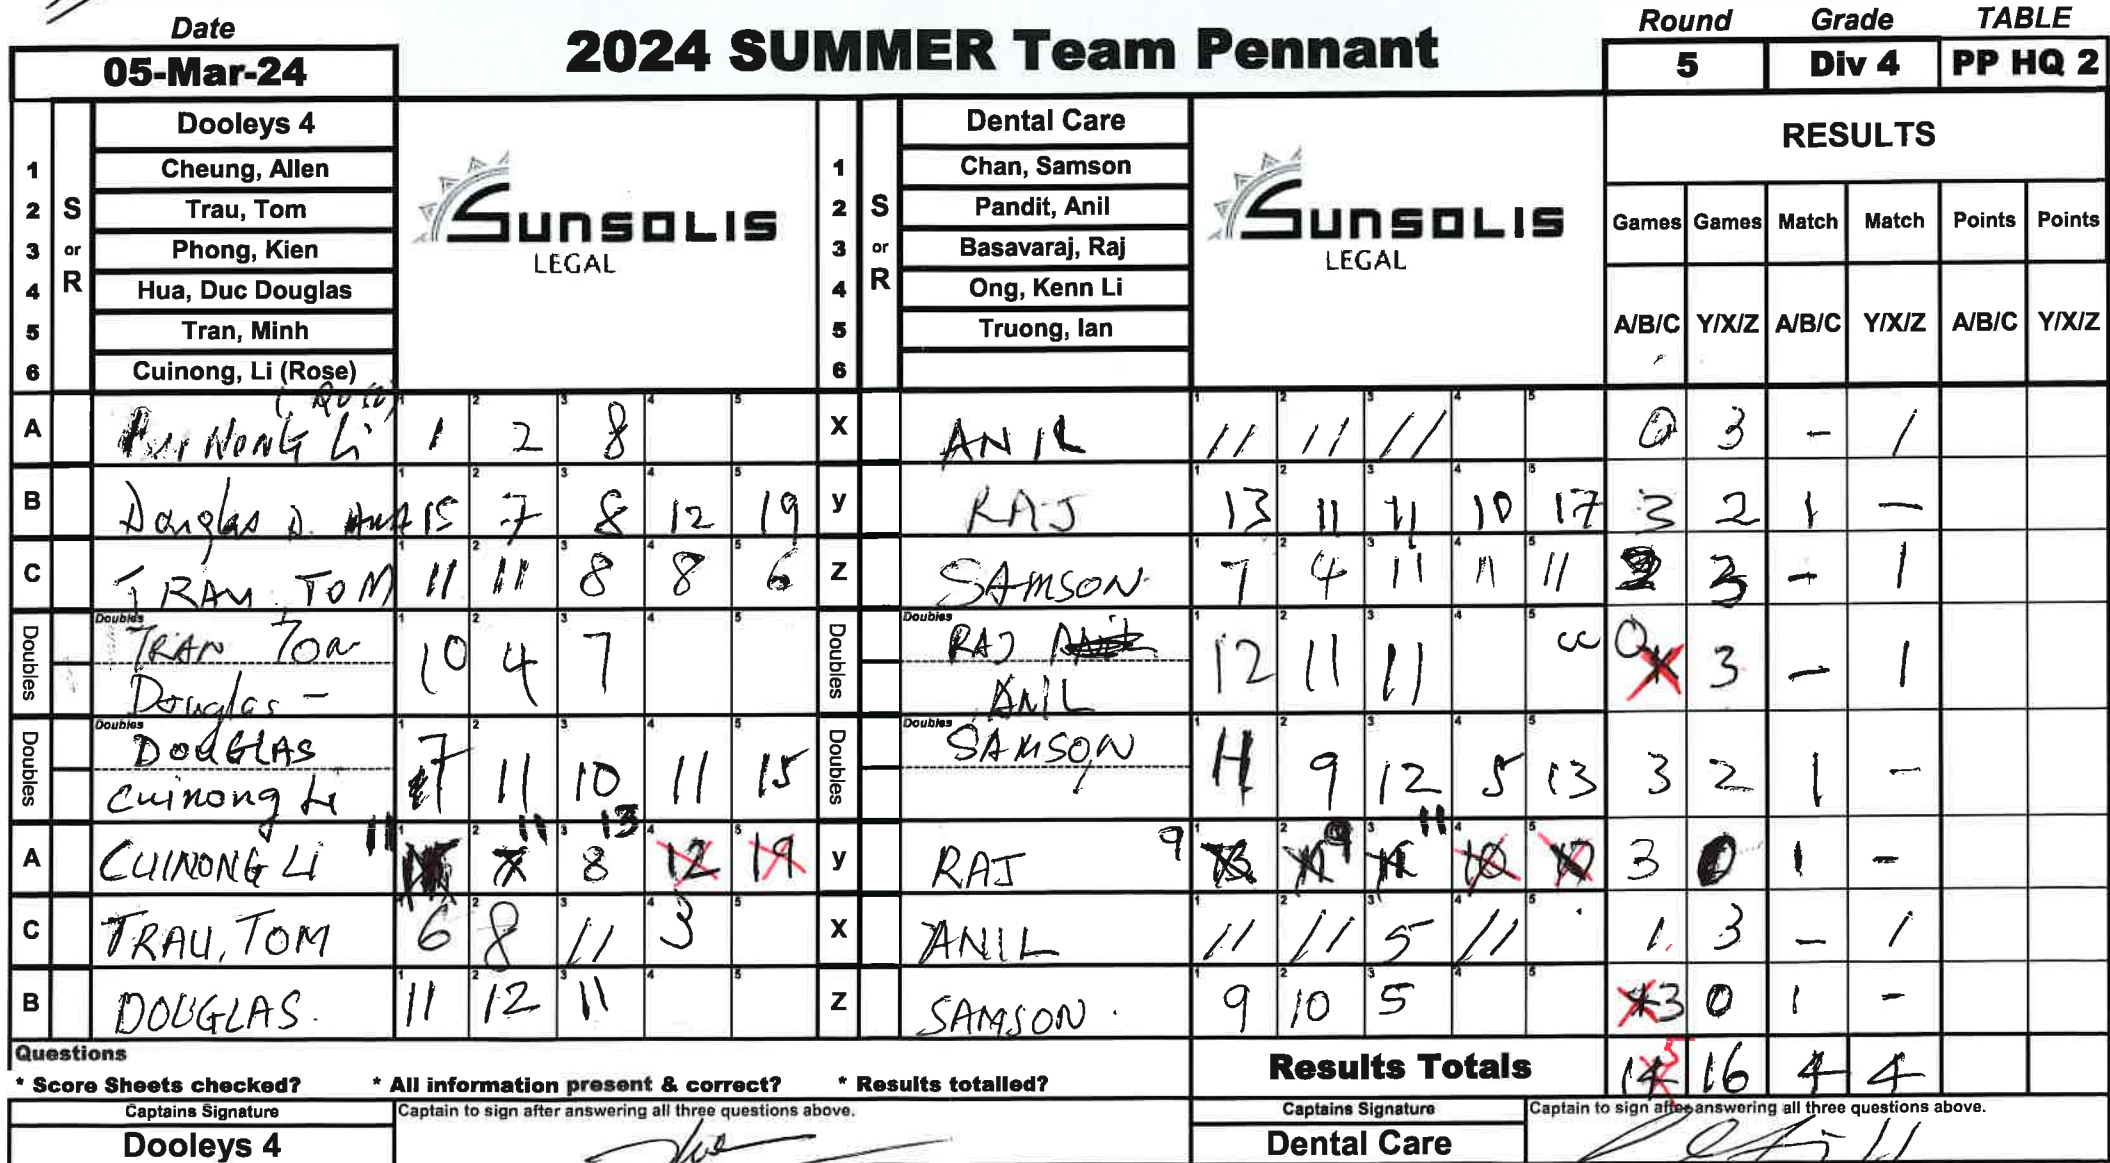 Date
05-Mar-24
2024 SUMMER Team Pennant
Round Grade TABLE
5 Div 4 PP HQ 2
S or R
Dooleys 4
1 Cheung, Allen
2 Trau, Tom
3 Phong, Kien
4 Hua, Duc Douglas
5 Tran, Minh
6 Cuinong, Li (Rose)
SUNSOLIS
LEGAL
S or R
Dental Care
1 Chan, Samson
2 Pandit, Anil
3 Basavaraj, Raj
4 Ong, Kenn Li
5 Truong, Ian
6
SUNSOLIS
LEGAL
RESULTS
Games Games Match Match Points Points
A/B/C Y/X/Z A/B/C Y/X/Z A/B/C Y/X/Z
A NONG Li 1 2 8 X ANIL 11 11 11 0 3 - 1
B Douglas D. 15 7 8 12 19 y RAJ 13 11 11 10 17 3 2 1 -
C TRAU, TOM 11 11 8 8 6 Z SAMSON 7 4 11 11 11 2 3 - 1
Doubles Doubles TRAN TOM 10 4 7 Doubles Doubles RAJ 12 11 11 0 3 - 1
Douglas - ANIL
Doubles Doubles DOUGLAS 7 11 10 11 15 Doubles Doubles SAMSON 11 9 12 5 13 3 2 1 -
Cuinong Li
A CUINONG Li 11 11 13 8 12 19 y RAJ 9 9 11 3 0 1 -
C TRAU, TOM 6 8 11 3 X ANIL 11 11 5 11 1 3 - 1
B DOUGLAS. 11 12 11 Z SAMSON 9 10 5 3 0 1 -
Questions
* Score Sheets checked? * All information present & correct? * Results totalled?
Results Totals 15 16 4 4
Captains Signature
Captain to sign after answering all three questions above.
Captains Signature
Captain to sign after answering all three questions above.
Dooleys 4
Dental Care